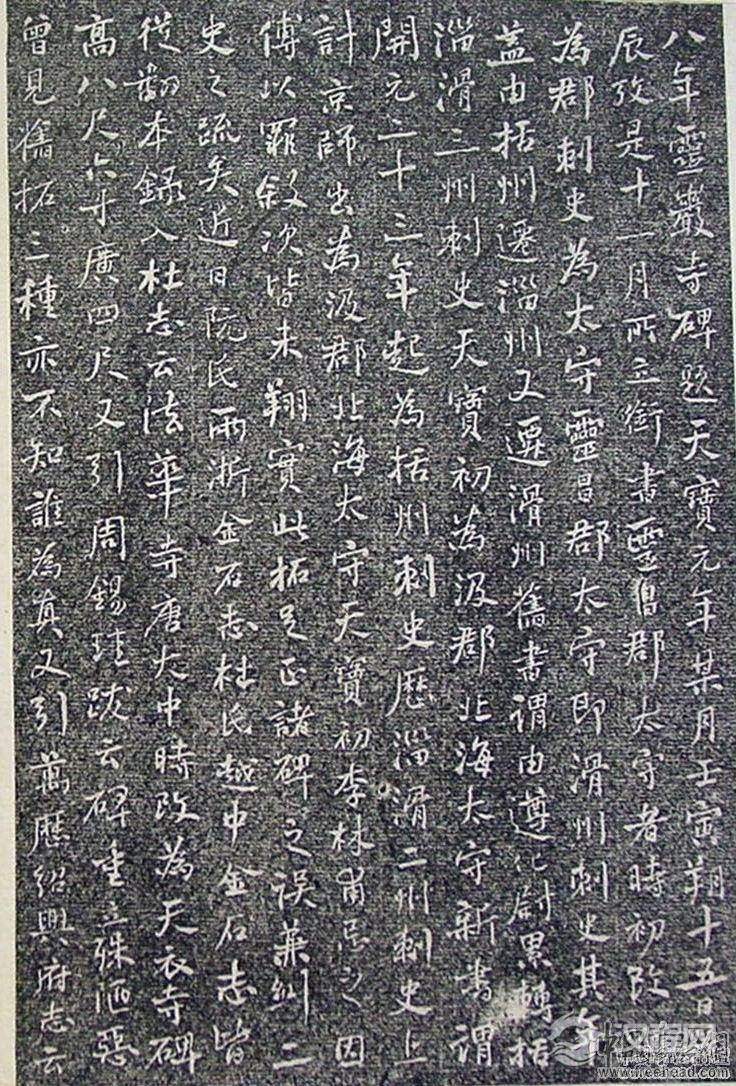 八年靈巖寺碑題天寶元年某月壬寅朔十五日
辰攷是十一月所立銜書靈昌郡太守者時初改
為郡刺史為太守靈昌郡太守即滑州刺史其年
盖由括州遷淄州又遷滑州舊書謂由遵化尉累轉括
淄滑三州刺史天寶初為汲郡北海太守新書謂
開元二十三年起為括州刺史歷淄滑二州刺史上
計京師出為汲郡北海太守天寶初李林甫忌之因
傅以罪敘次皆未翔實此拓足正諸碑之誤兼糾二
史之疏矣近日阮氏兩浙金石志杜氏越中金石志皆
從翻本錄入杜志云法華寺唐大中時改為天衣寺碑
高八尺六寸廣四尺又引周錫珪跋云碑重立殊陋惡
曾見舊拓三種亦不知誰為真又引萬歷紹興府志云
www.freehead.com